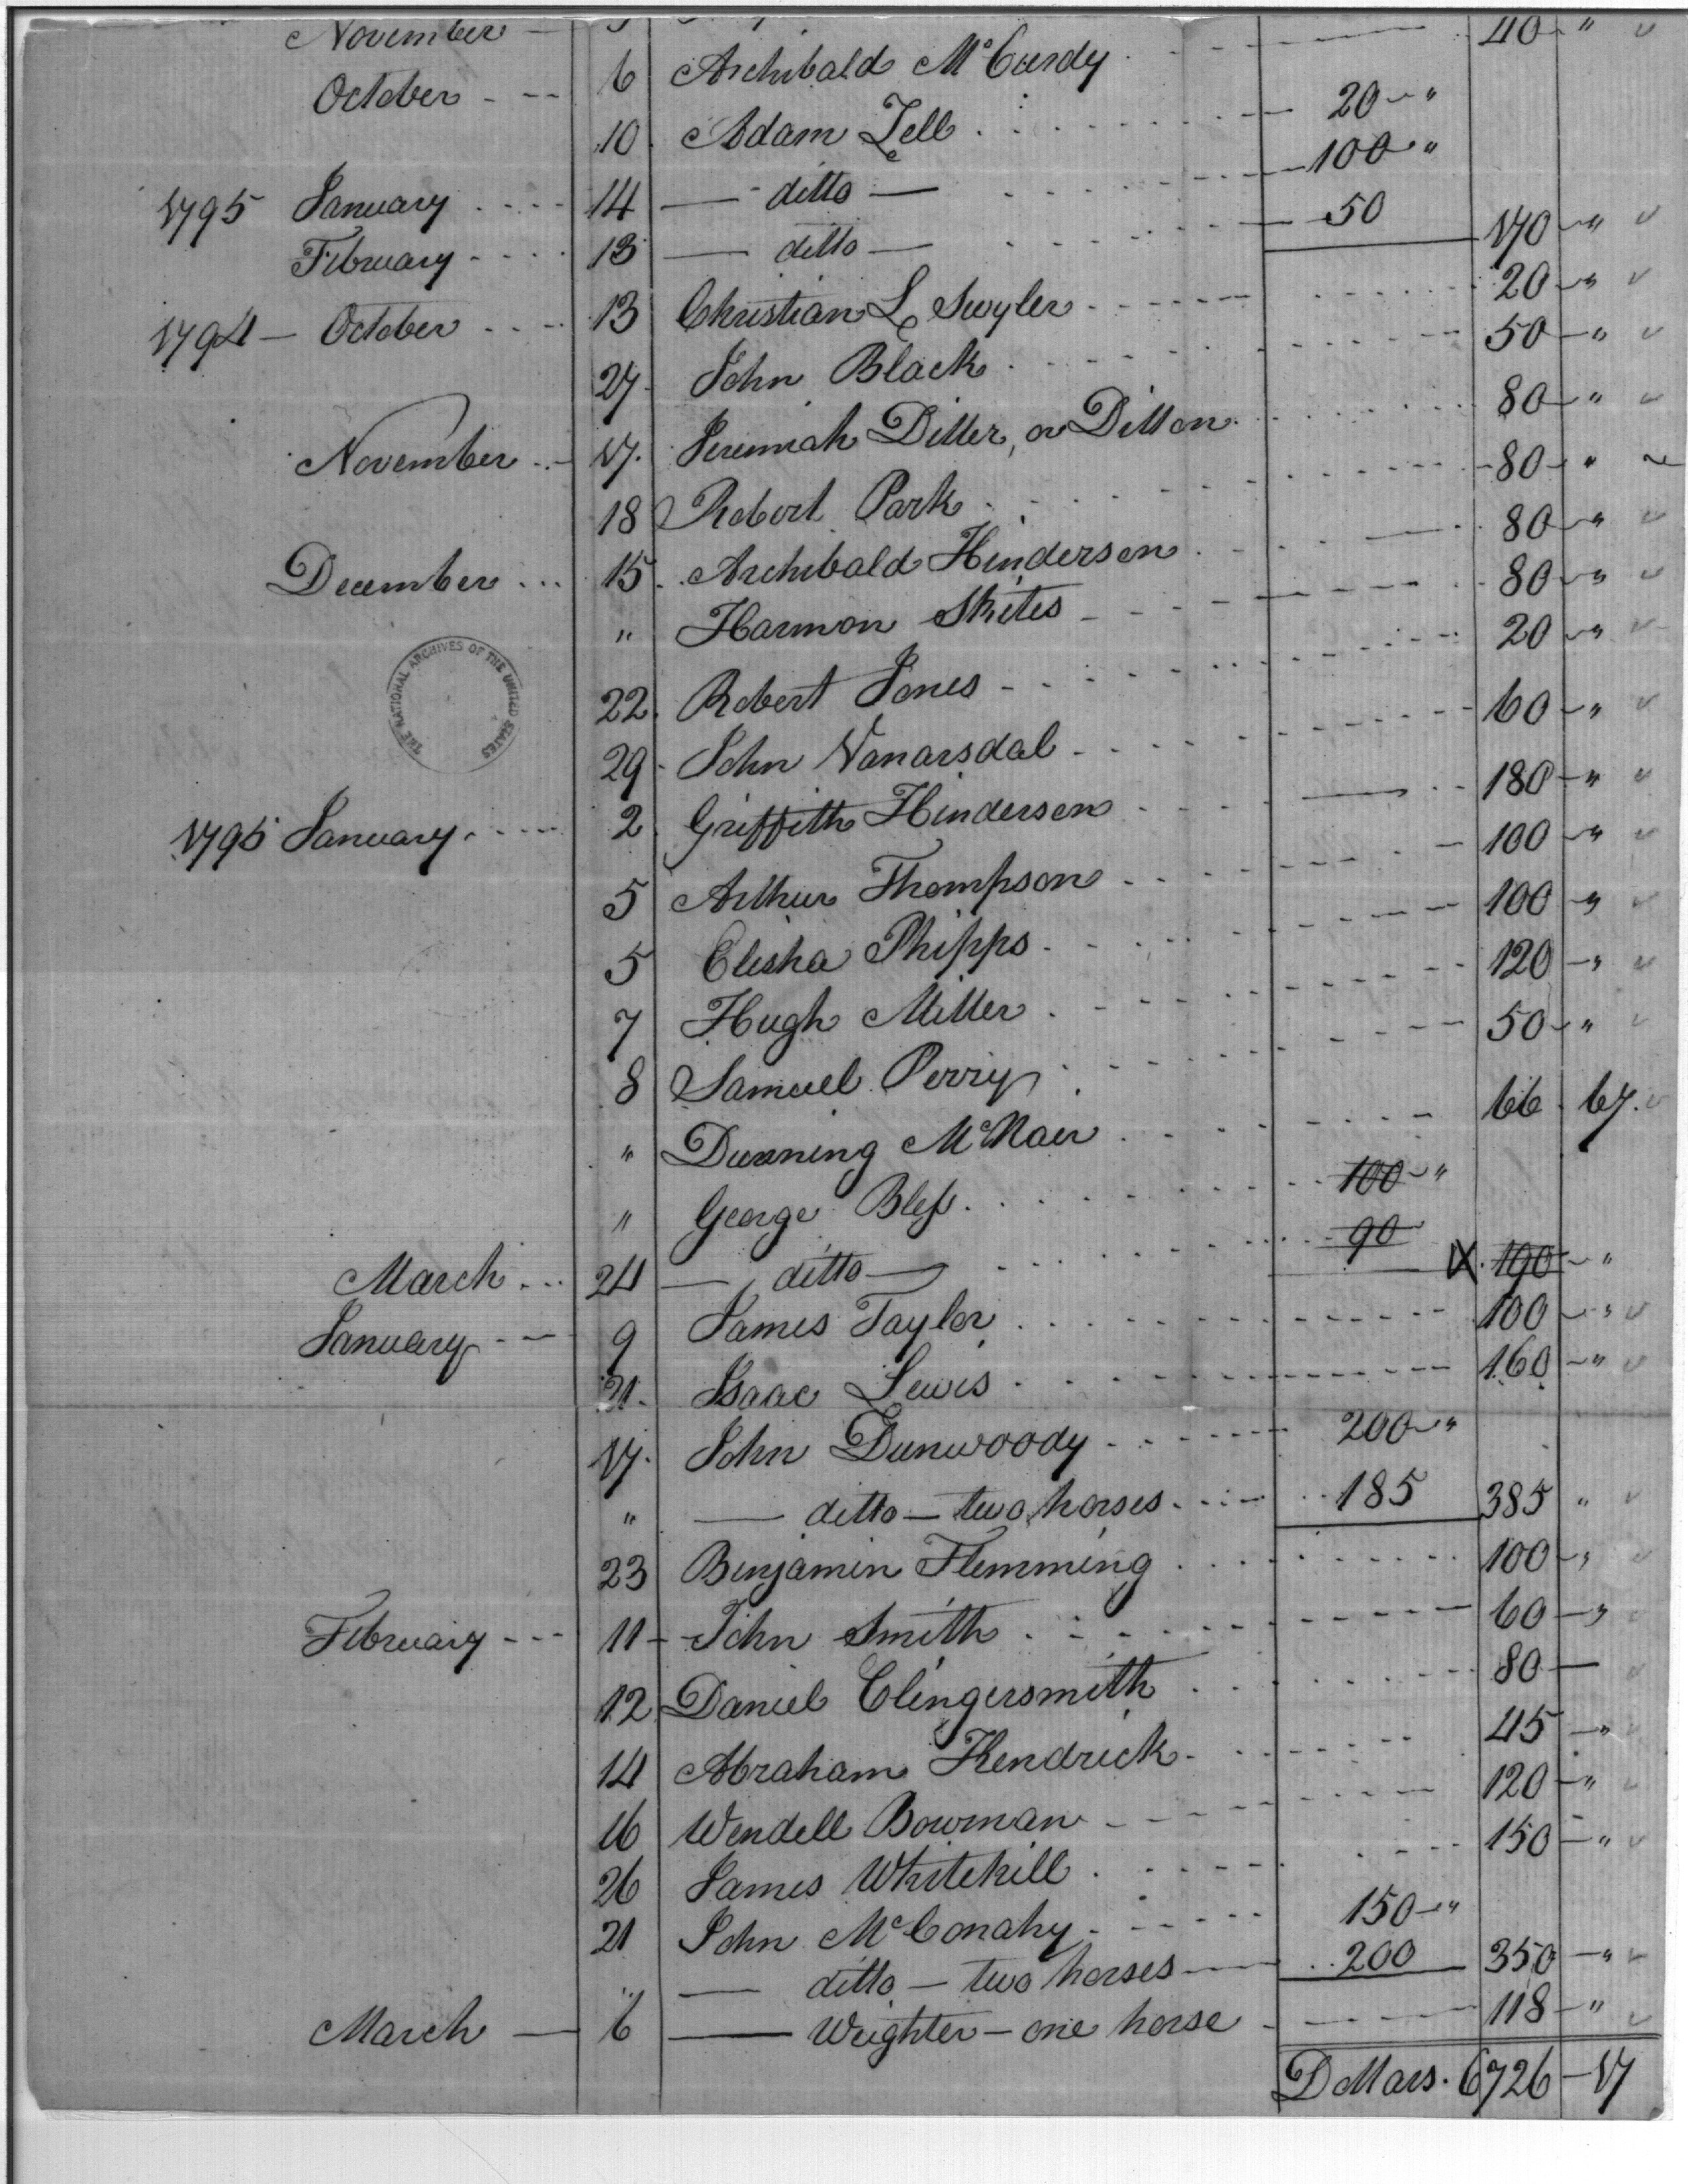 November — 40 "
October - -- 6 Archibald McCurdy
10 Adam Zell 20 "
1795 January 14 — ditto — 100 "
February 13 — ditto — 50 170 "
1794 — October 13 Christian L Swyler 20 "
27 John Black 50 "
November 17 Jeremiah Ditter, or Ditton 80 "
18 Robert Park 80 "
December 15 Archibald Henderson 80 "
" Harmon Skites 80 "
22 Robert Jones 20 "
29 John Vanarsdal 60 "
1795 January 2 Griffith Henderson 180 "
5 Arthur Thompson 100 "
5 Elisha Phipps 100 "
7 Hugh Miller 120 "
8 Samuel Perry 50 "
" Dunning McNair 66 67
" George Bless 100 "
March 24 — ditto — 90 X 190 "
January 9 James Taylor 100 "
21 Isaac Lewis 160 "
17 John Dunwoody 200 "
" — ditto — two horses 185 385 "
23 Benjamin Flemming 100 "
February 11 John Smith 60 "
12 Daniel Clingersmith 80 —
14 Abraham Kendrick 45 "
16 Wendell Bowman 120 "
26 James Whitehill 150 "
21 John McConahy 150 "
" — ditto — two horses 200 350 "
March — 6 — Weighter — one horse 118 "
Dollars. 6726 — 17
THE NATIONAL ARCHIVES OF THE UNITED STATES